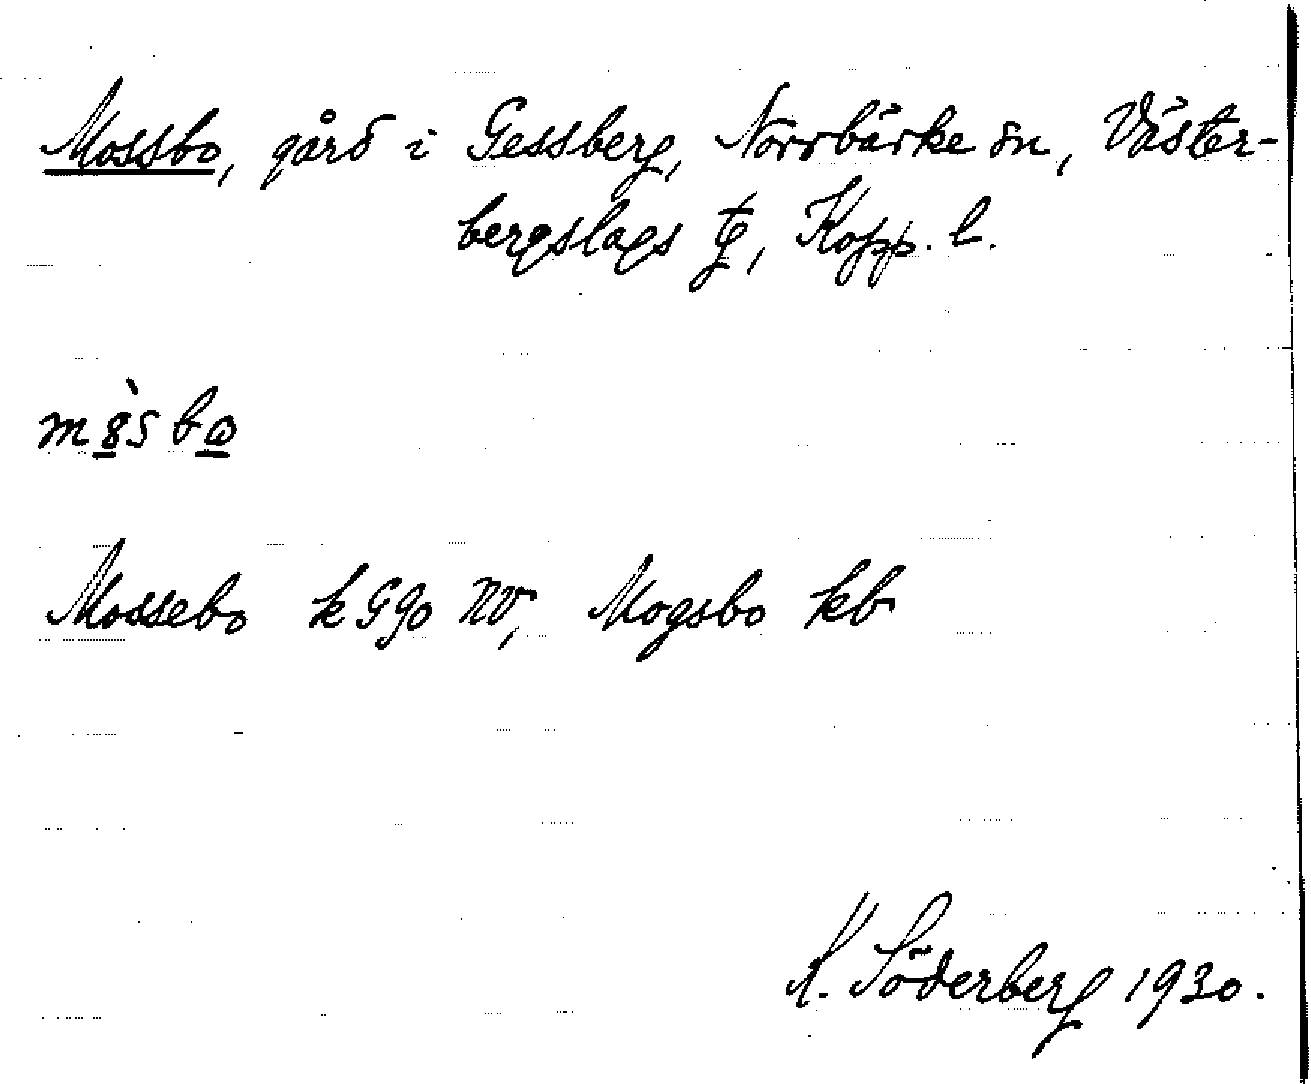 Mossbo, gård i Gessberg, Norrbärke sn, Väster-
bergslags tg, Kopp. l.
Mossebo k G90 NV, Mogsbo kb
K. Söderberg 1930.